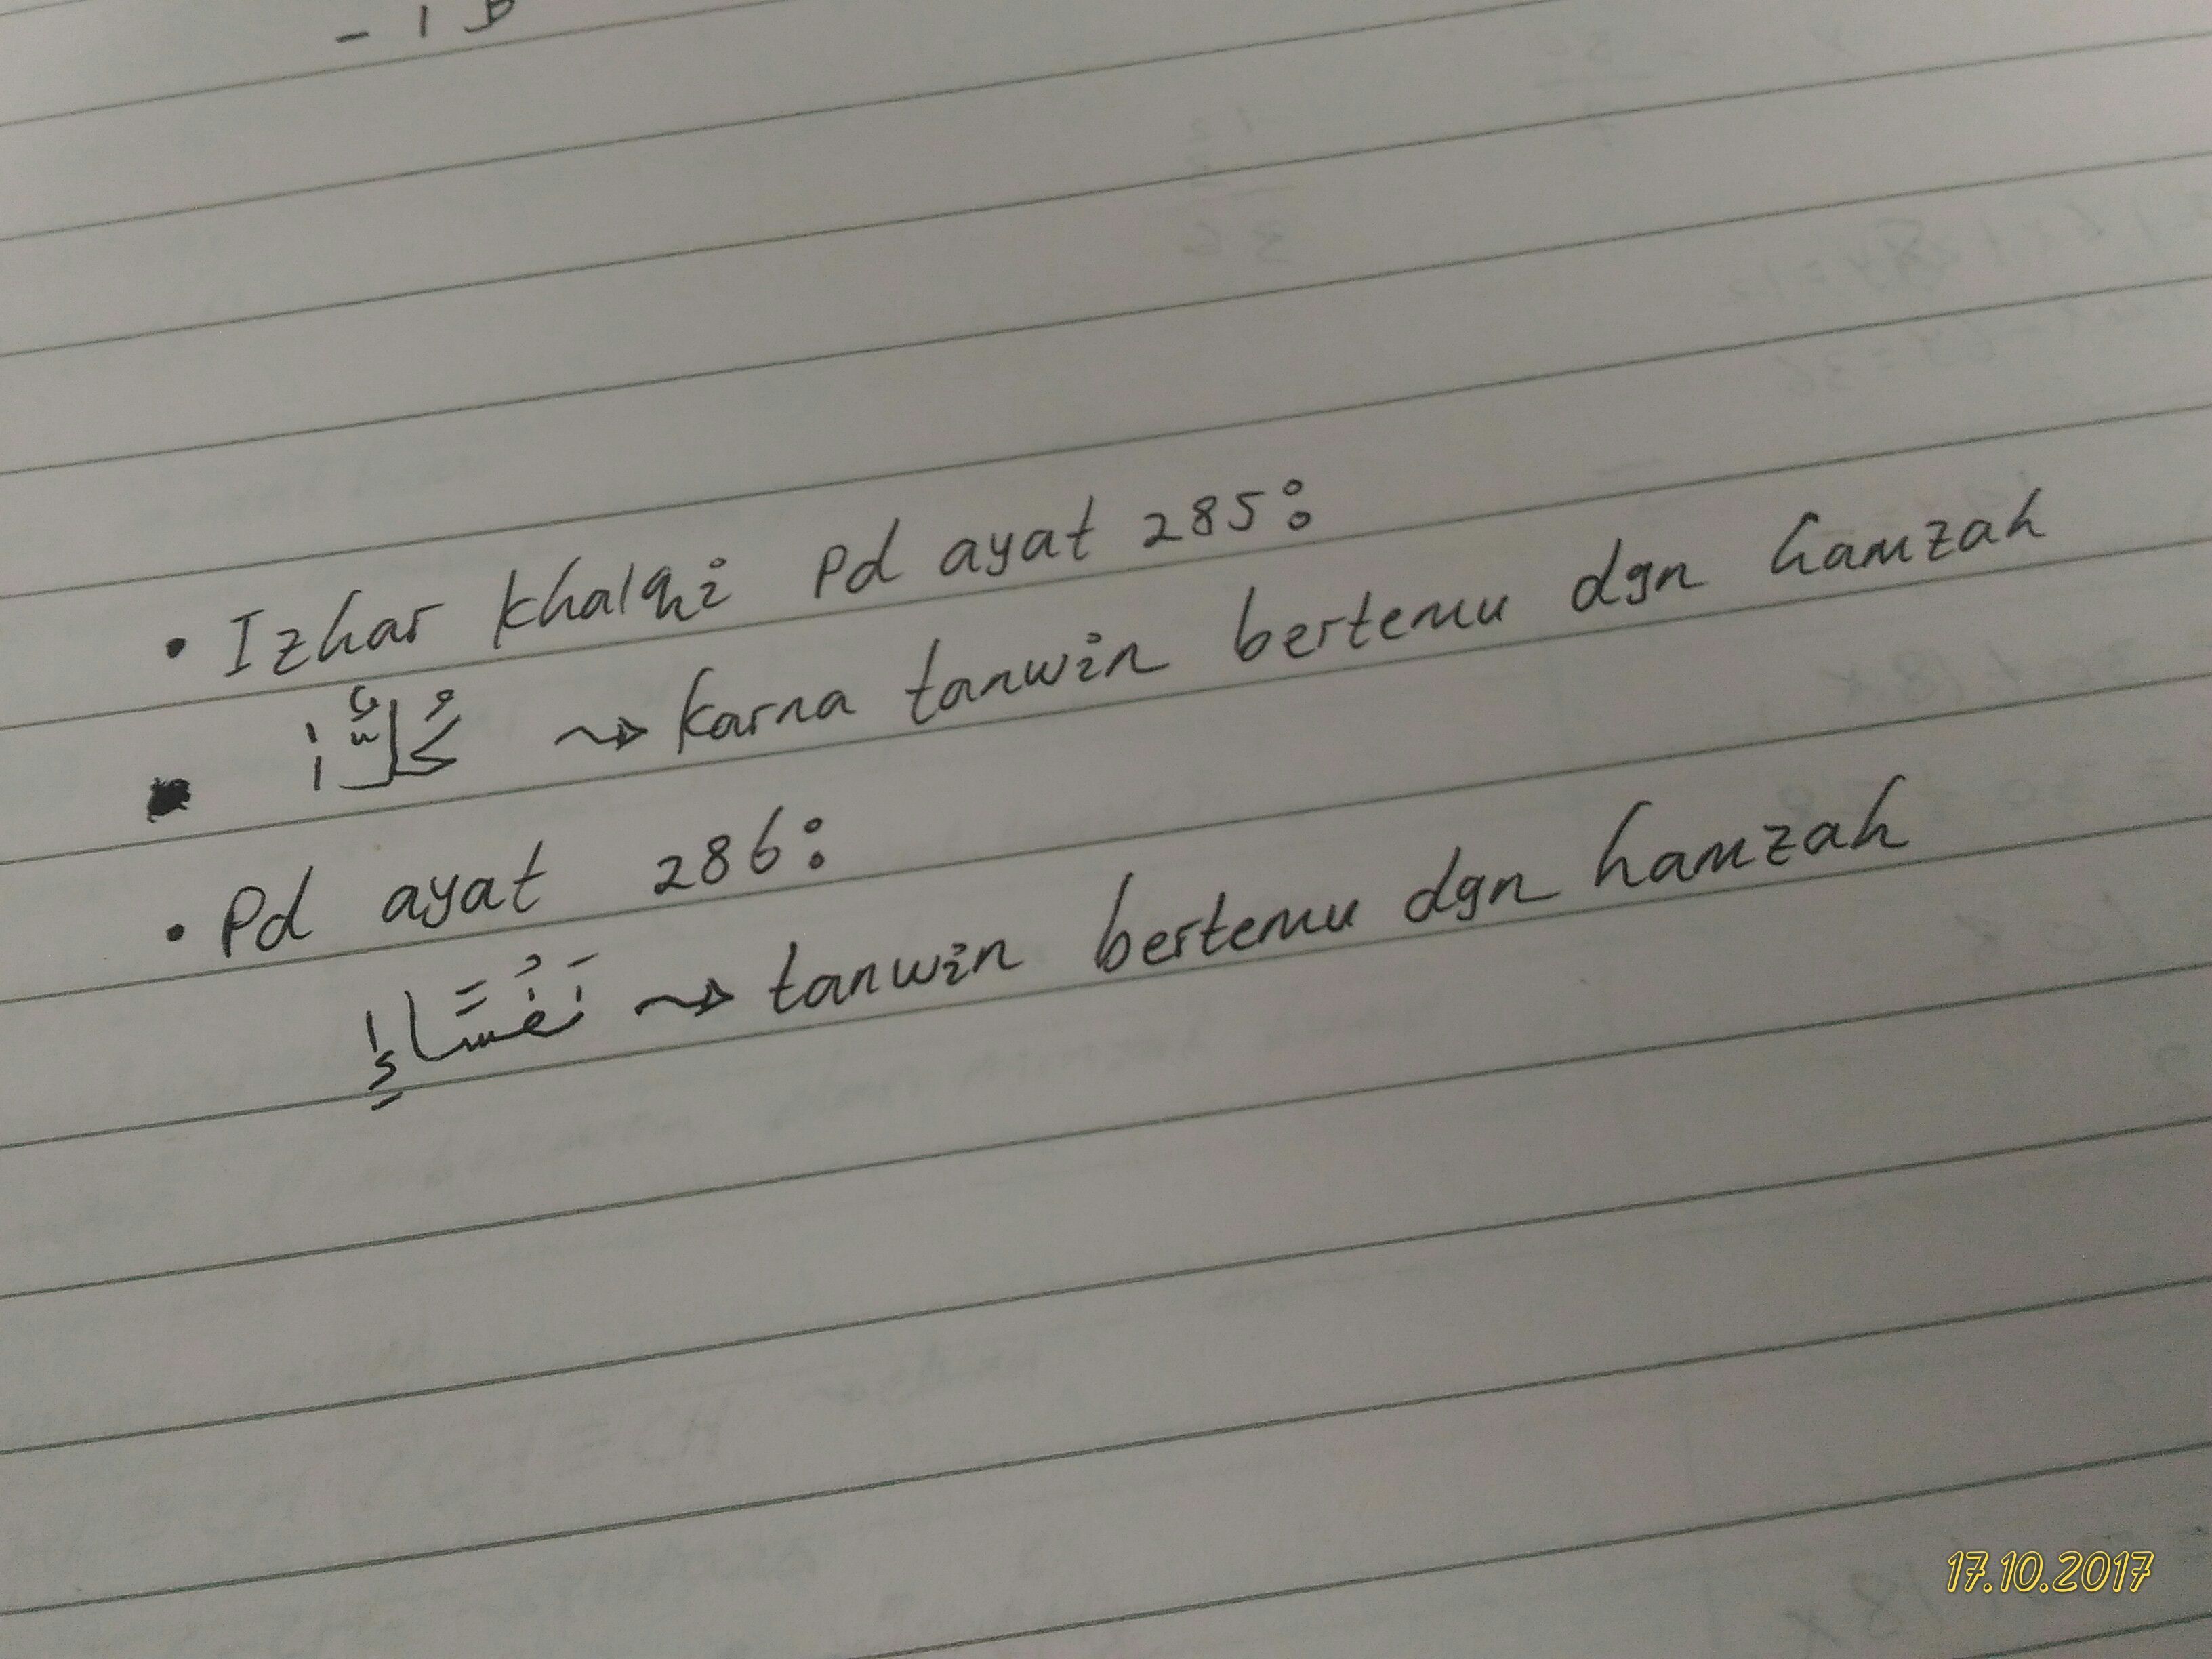 - 1 B
• Izhar khalqi pd ayat 285:
كُلٌّ أ ~> karna tanwin bertemu dgn hamzah
• Pd ayat 286:
نَفْسًا إِ ~> tanwin bertemu dgn hamzah
17.10.2017